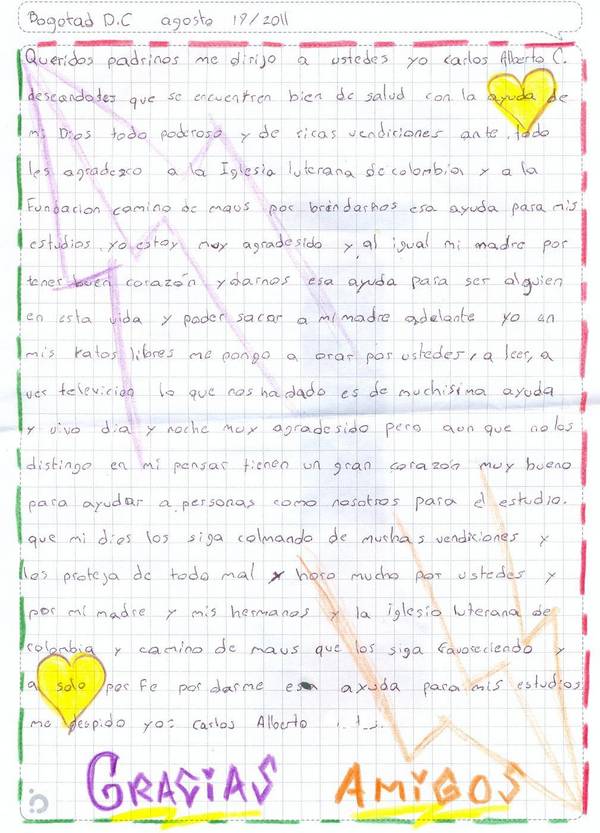 Bogotad D.C agosto 19/2011
Queridos padrinos me dirijo a ustedes yo carlos Alberto C.
descandotes que se encuentren bien de salud con la ayuda de
mi Dios todo poderoso y de ricas vendiciones ante todo
les agradezco a la Iglesia luterana de colombia y a la
Fundacion camino de maus por brindarnos esa ayuda para mis
estudios. yo estoy muy agradesido y al igual mi madre por
tener buen corazón y darnos esa ayuda para ser alguien
en esta vida y poder sacar a mi madre adelante yo en
mis ratos libres me pongo a orar por ustedes, a leer, a
ver televicion lo que nos ha dado es de muchisima ayuda
y vivo dia y noche muy agradesido pero aun que no los
distingo en mi pensar tienen un gran corazón muy bueno
para ayudar a personas como nosotros para el estudio.
que mi dios los siga colmando de muchas vendiciones y
los proteja de todo mal y horo mucho por ustedes y
por mi madre y mis hermanos y la iglesia luterana de
colombia y camino de maus que los siga favoreciendo y
a solo por Fe por darme esa ayuda para mis estudios
me despido yo: Carlos Alberto
GRACIAS AMIGOS